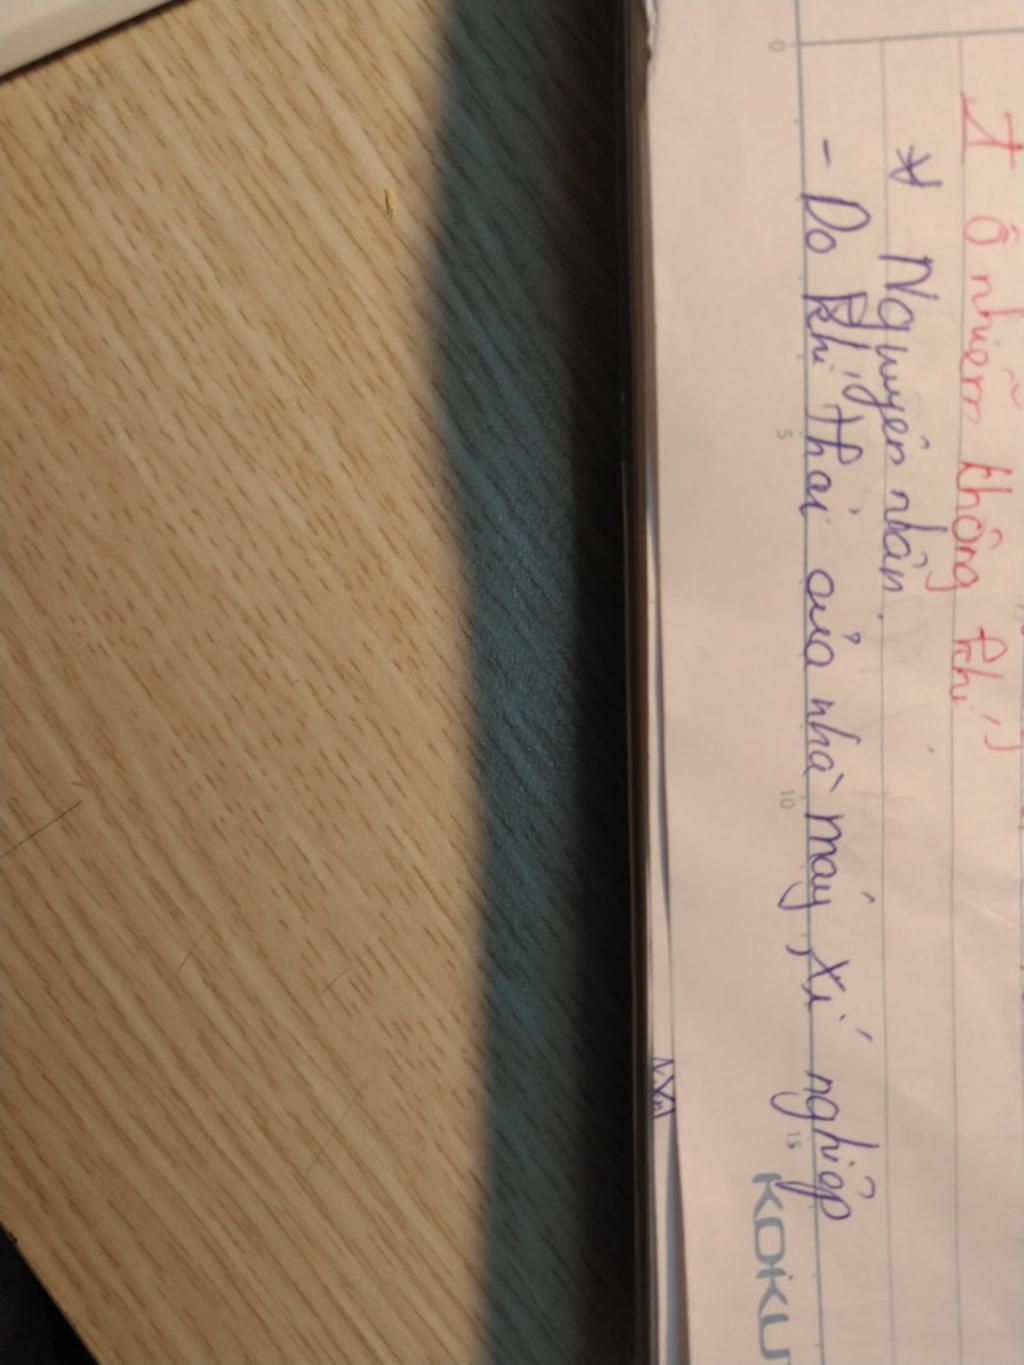 1 Ô nhiễm không khí
* Nguyên nhân.
- Do khí thải của nhà máy, xí nghiệp
0 5 10 15
KOKU